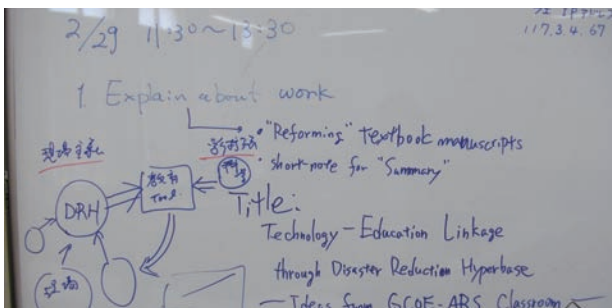 2/29 11:30~13:30
117.3.4.67
1. Explain about work
"Reforming" textbook manuscripts
short-note for "Summary"
DRH
教育
Tool
Title:
Technology-Education Linkage
through Disaster Reduction Hyperbase
— Ideas from GCOE-ARS Classroom